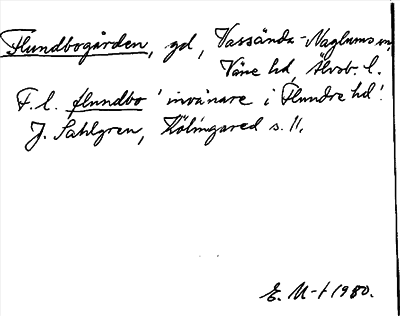 Flundbogården, gd, Vassända-Naglums sn,
Väne hd, Älvsb. l.
F. l. flundbo 'invånare i Flundre hd'.
J. Sahlgren, Kölingared s. 11.
E. M-t 1980.